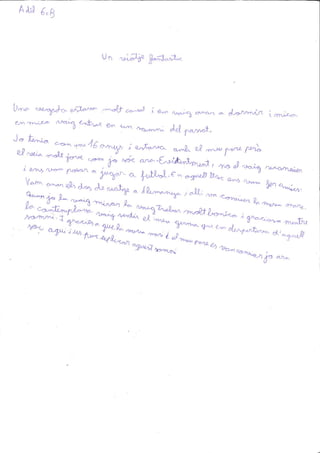 Adil 6.B
Un viatge fantàstic
Una vegada estava molt cansat i em vaig anar a dormir i mica
en mica vaig entrar en un somni del passat.
Jo tenia com uns 16 anys i estava amb el meu pare però
el veia molt jove com jo sóc ara. Evidentment, no el vaig reconeixer
i ens vam posar a jugar a futbol. En aquell lloc ens vam fer amics.
Vam anar els dos de viatge a Alemanya, allí vam coneixer la meva mare.
Quan jo la vaig mirar la vaig trobar molt bonica i graciosa mentre
la contemplava vaig sentir el meu germà que em despertava d'aquell
somni. I gracies a que la meva mare i el meu pare es van coneixer jo ara
sóc aquí i us puc explicar aquest somni